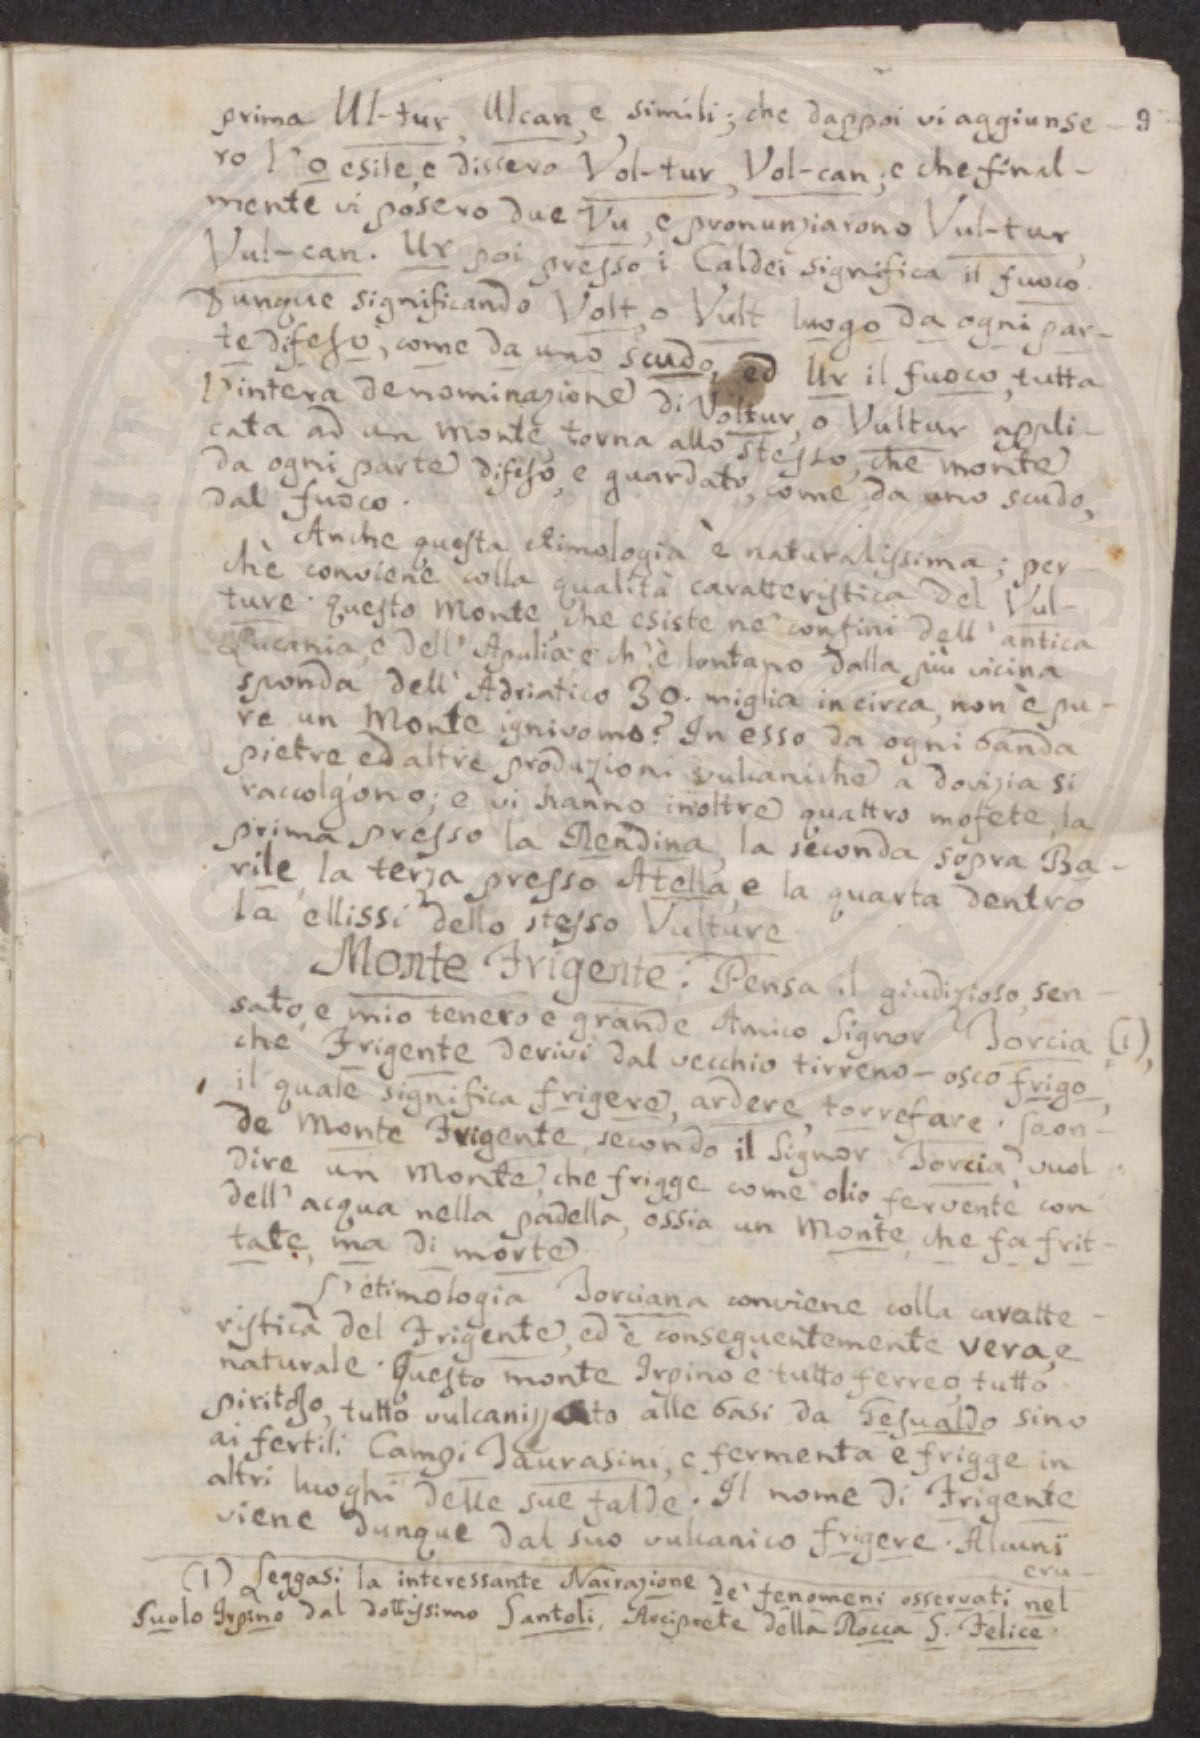 9
prima Ul-tur, Ulcan, e simili; che dappoi vi aggiunse-
ro l'o esile, e dissero Vol-tur, Vol-can; e che final-
mente vi posero due Vu, e pronunziarono Vul-tur,
Vul-can. Ur poi presso i Caldei significa il fuoco.
Dunque significando Volt, o Vult luogo da ogni par-
te difeso, come da uno scudo, ed Ur il fuoco, tutta
l'intera denominazione di Voltur, o Vultur appli-
cata ad un monte, torna allo stesso, che monte
da ogni parte difeso, e guardato, come da uno scudo,
dal fuoco.
Anche questa etimologia è naturalissima; per-
chè conviene colla qualità caratteristica del Vul-
ture. Questo Monte che esiste ne' confini dell'antica
Lucania, e dell'Apulia e ch'è lontano dalla più vicina
sponda dell'Adriatico 30. miglia in circa, non è pu-
re un Monte ignivomo? In esso da ogni banda
pietre, ed altre produzioni vulcaniche a dovizia si
raccolgono; e vi hanno inoltre quattro mofete, la
prima presso la Rendina, la seconda sopra Ba-
rile, la terza presso Atella, e la quarta dentro
la ellissi dello stesso Vulture
Monte Frigente. Pensa il giudizioso, sen-
sato, e mio tenero e grande Amico Signor Torcia (1),
che Frigente derivi dal vecchio tirreno-osco frigo,
il quale significa frigere, ardere, torrefare. Laon-
de Monte Frigente, secondo il Signor Torcia, vuol
dire un Monte, che frigge come olio fervente con
dell'acqua nella padella, ossia un Monte, che fa frit-
tate, ma di morte.
L'etimologia Torciana conviene colla caratte-
ristica del Frigente, ed è conseguentemente vera, e
naturale. Questo monte Irpino è tutto ferreo, tutto
piritoso, tutto vulcanizzato alle basi da Gesualdo sino
ai fertili Campi Taurasini, e fermenta e frigge in
altri luoghi delle sue falde. Il nome di Frigente
viene dunque dal suo vulcanico frigere. Alcuni
eru-
(1) Leggasi la interessante Narrazione de' fenomeni osservati nel
suolo Irpino dal dottissimo Santoli, Arciprete della Rocca S. Felice.